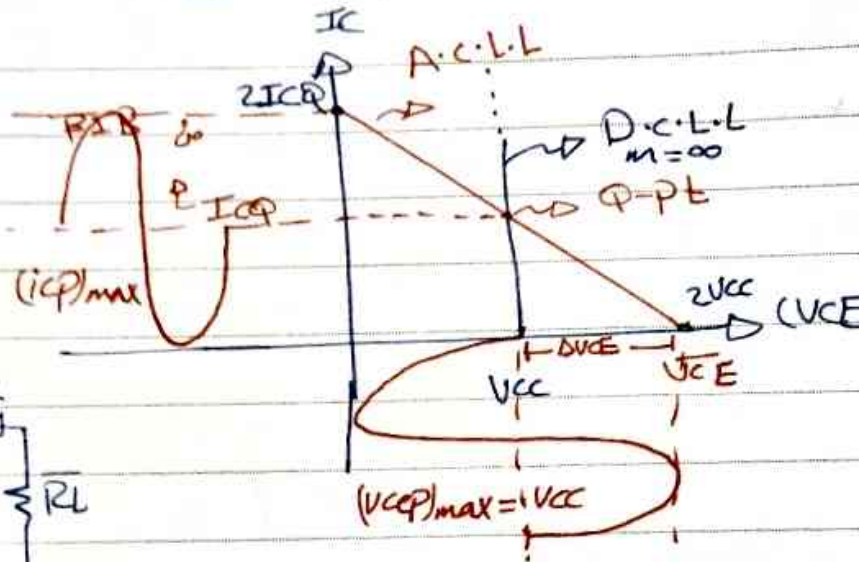 IC
A.C.L.L
2ICQ
D.C.L.L
m=∞
ICQ
Q-pt
(icp)max
2VCC
(VCE
ΔVCE
VCC
VCE
RL
(Vcep)max=VCC